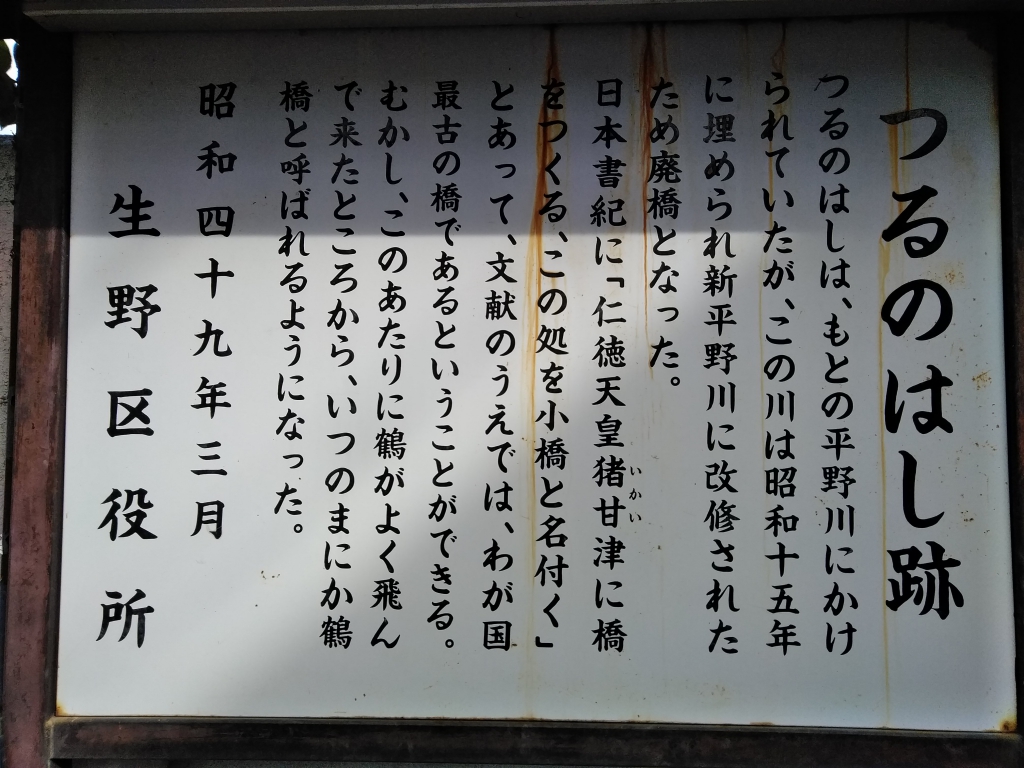 つるのはし跡
つるのはしは、もとの平野川にかけ
られていたが、この川は昭和十五年
に埋められ新平野川に改修された
ため廃橋となった。
日本書紀に「仁徳天皇猪甘津に橋
いかい
をつくる、この処を小橋と名付く」
とあって、文献のうえでは、わが国
最古の橋であるということができる。
むかし、このあたりに鶴がよく飛ん
で来たところから、いつのまにか鶴
橋と呼ばれるようになった。
昭和四十九年三月
生野区役所